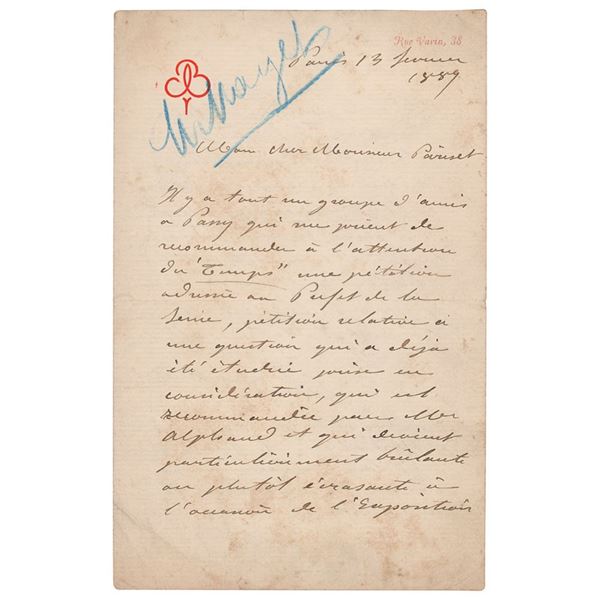 Rue Varin, 38
Paris 13 février
1889
Mon cher Monsieur Pariset
Il y a tout un groupe d'amis
a Passy qui me prient de
recommander à l'attention
du "Temps" une pétition
adressée au Prefet de la
Seine, pétition relative à
une question qui a déjà
été étudiée prise en
considération, qui est
recommandée par Mr
Alphand et qui devient
particulièrement brûlante
ou plutôt écrasante à
l'occasion de l'Exposition